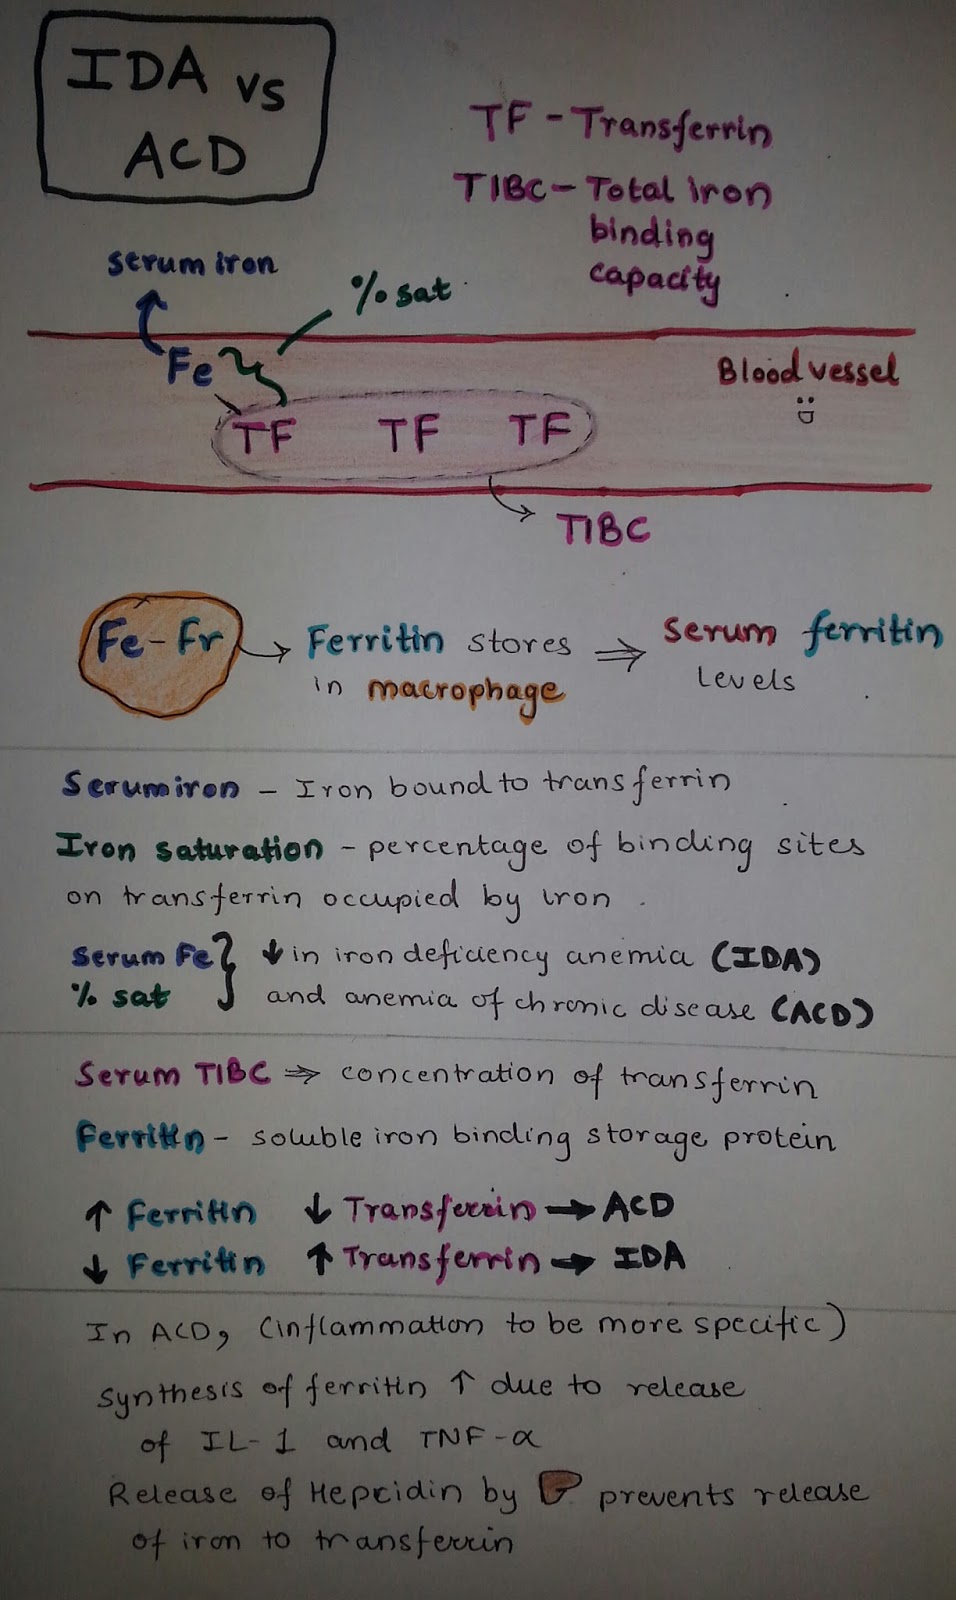 IDA vs
ACD
TF - Transferrin
TIBC - Total iron
binding
capacity
serum iron
% sat
Fe
Blood vessel
TF TF TF
TIBC
Fe - Fr → Ferritin stores ⇒ serum ferritin
in macrophage levels
Serum iron - Iron bound to transferrin
Iron saturation - percentage of binding sites
on transferrin occupied by iron.
serum Fe } ↓ in iron deficiency anemia (IDA)
% sat and anemia of chronic disease (ACD)
Serum TIBC ⇒ concentration of transferrin
Ferritin - soluble iron binding storage protein
↑ Ferritin ↓ Transferrin → ACD
↓ Ferritin ↑ Transferrin → IDA
In ACD, (inflammation to be more specific)
synthesis of ferritin ↑ due to release
of IL-1 and TNF-α
Release of Hepcidin by prevents release
of iron to transferrin